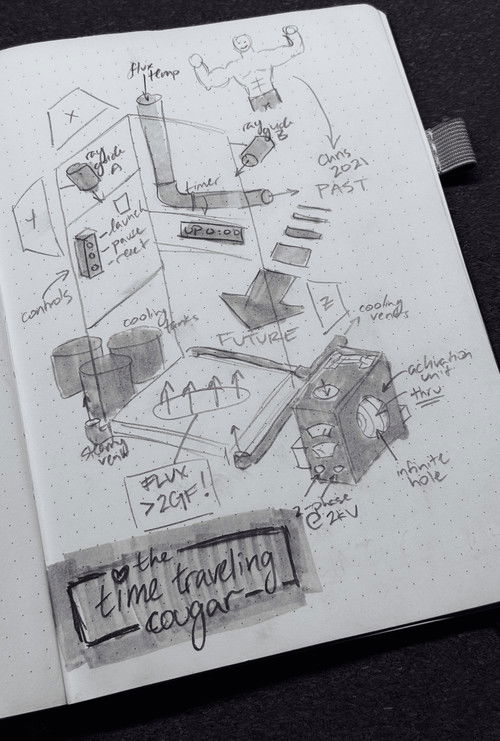 flux
temp
X
ray
guide
A
ray
guide
B
Chris
2021
PAST
Y
timer
launch
pause
reset
UP 0:00
controls
Z
cooling
tanks
FUTURE
cooling
vents
activation
unit
thru
V
steamy
vend
infinite
hole
FLUX
>2GF!
2-phase
@ 2kV
the
time traveling
cougar